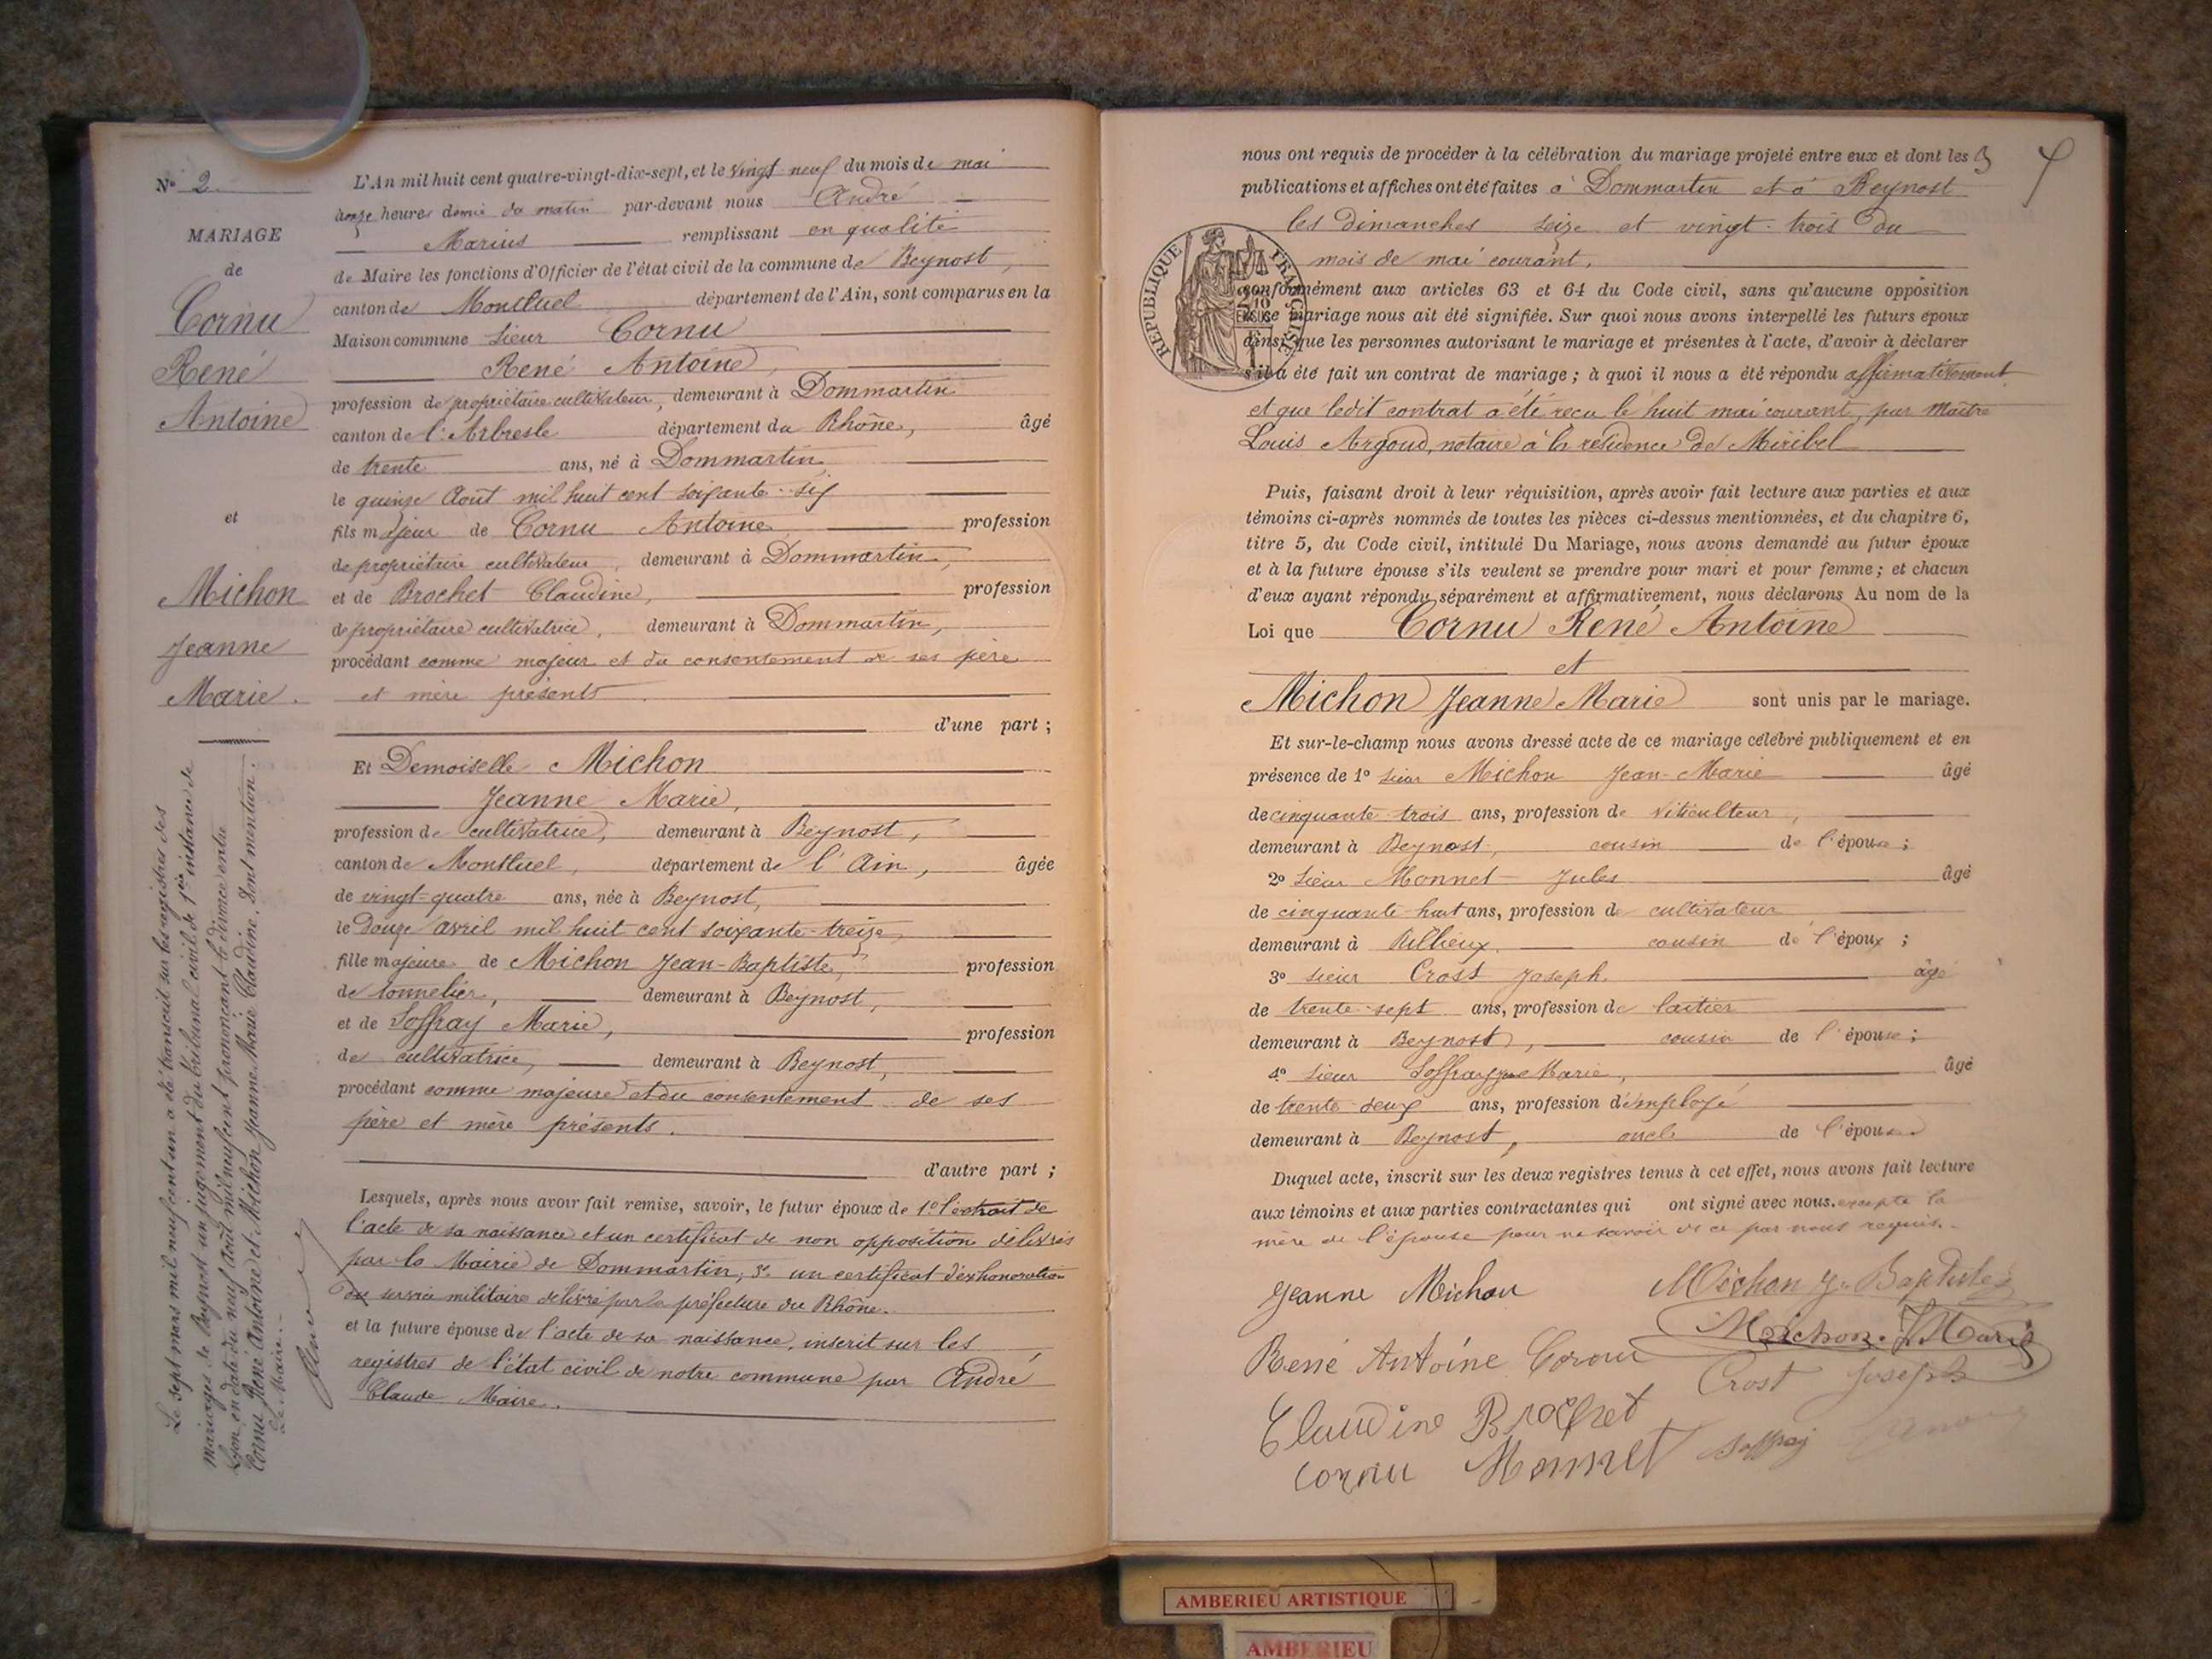 N° 2
MARIAGE
de
Cornu
René
Antoine
et
Michon
Jeanne
Marie.
Le sept mars mil neuf cent un a été transcrit sur les registres des
mariages de Beynost un jugement du tribunal civil de 1ère instance de
Lyon en date du neuf août mil neuf cent prononçant le divorce entre
Cornu René Antoine et Michon Jeanne Marie Claudine. Dont mention.
Le Maire.
L'An mil huit cent quatre-vingt-dix-sept, et le vingt neuf du mois de mai
à onze heures demie du matin par-devant nous André
Marius remplissant en qualité
de Maire les fonctions d'Officier de l'état civil de la commune de Beynost,
canton de Montluel département de l'Ain, sont comparus en la
Maison commune sieur Cornu
René Antoine,
profession de propriétaire cultivateur, demeurant à Dommartin
canton de l'Arbresle département du Rhône, âgé
de trente ans, né à Dommartin
le quinze Août mil huit cent soixante-six
fils majeur de Cornu Antoine profession
de propriétaire cultivateur, demeurant à Dommartin,
et de Brochet Claudine, profession
de propriétaire cultivatrice, demeurant à Dommartin,
procédant comme majeur et du consentement de ses père
et mère présents.
d'une part ;
Et Demoiselle Michon
Jeanne Marie,
profession de cultivatrice, demeurant à Beynost,
canton de Montluel, département de l'Ain, âgée
de vingt-quatre ans, née à Beynost,
le Douze avril mil huit cent soixante-treize,
fille majeure de Michon Jean-Baptiste, profession
de tonnelier, demeurant à Beynost,
et de Soffray Marie, profession
de cultivatrice, demeurant à Beynost,
procédant comme majeure et du consentement de ses
père et mère présents.
d'autre part ;
Lesquels, après nous avoir fait remise, savoir, le futur époux de 1° l'extrait de
l'acte de sa naissance et un certificat de non opposition délivrés
par la Mairie de Dommartin, un certificat d'exhonoration
du service militaire délivré par la préfecture du Rhône.
et la future épouse de l'acte de sa naissance, inscrit sur les
registres de l'état civil de notre commune par André
Claude Maire.
nous ont requis de procéder à la célébration du mariage projeté entre eux et dont les 3
publications et affiches ont été faites à Dommartin et à Beynost
les dimanches seize et vingt-trois du
mois de mai courant,
RÉPUBLIQUE FRANÇAISE
conformément aux articles 63 et 64 du Code civil, sans qu'aucune opposition
à ce mariage nous ait été signifiée. Sur quoi nous avons interpellé les futurs époux
ainsi que les personnes autorisant le mariage et présentes à l'acte, d'avoir à déclarer
s'il a été fait un contrat de mariage ; à quoi il nous a été répondu affirmativement
et que ledit contrat a été reçu le huit mai courant, par Maître
Louis Argoud, notaire à la résidence de Miribel
Puis, faisant droit à leur réquisition, après avoir fait lecture aux parties et aux
témoins ci-après nommés de toutes les pièces ci-dessus mentionnées, et du chapitre 6,
titre 5, du Code civil, intitulé Du Mariage, nous avons demandé au futur époux
et à la future épouse s'ils veulent se prendre pour mari et pour femme ; et chacun
d'eux ayant répondu séparément et affirmativement, nous déclarons Au nom de la
Loi que Cornu René Antoine
et
Michon Jeanne Marie sont unis par le mariage.
Et sur-le-champ nous avons dressé acte de ce mariage célébré publiquement et en
présence de 1° sieur Michon Jean-Marie âgé
de cinquante trois ans, profession de viticulteur,
demeurant à Beynost, cousin de l'épouse ;
2° sieur Monnet Jules âgé
de cinquante-huit ans, profession de cultivateur
demeurant à Rillieux, cousin de l'époux ;
3° sieur Crost Joseph. âgé
de trente-sept ans, profession de laitier
demeurant à Beynost, cousin de l'épouse ;
4° sieur Soffray Marie, âgé
de trente-deux ans, profession d'employé
demeurant à Beynost, oncle de l'épouse
Duquel acte, inscrit sur les deux registres tenus à cet effet, nous avons fait lecture
aux témoins et aux parties contractantes qui ont signé avec nous. excepté la
mère de l'épouse pour ne savoir de ce par nous requis.
Jeanne Michon Michon J. Baptiste
Michon J. Marie
René Antoine Cornu Crost Joseph
Claudine Brochet
Cornu Monnet Soffray
AMBERIEU ARTISTIQUE
AMBERIEU